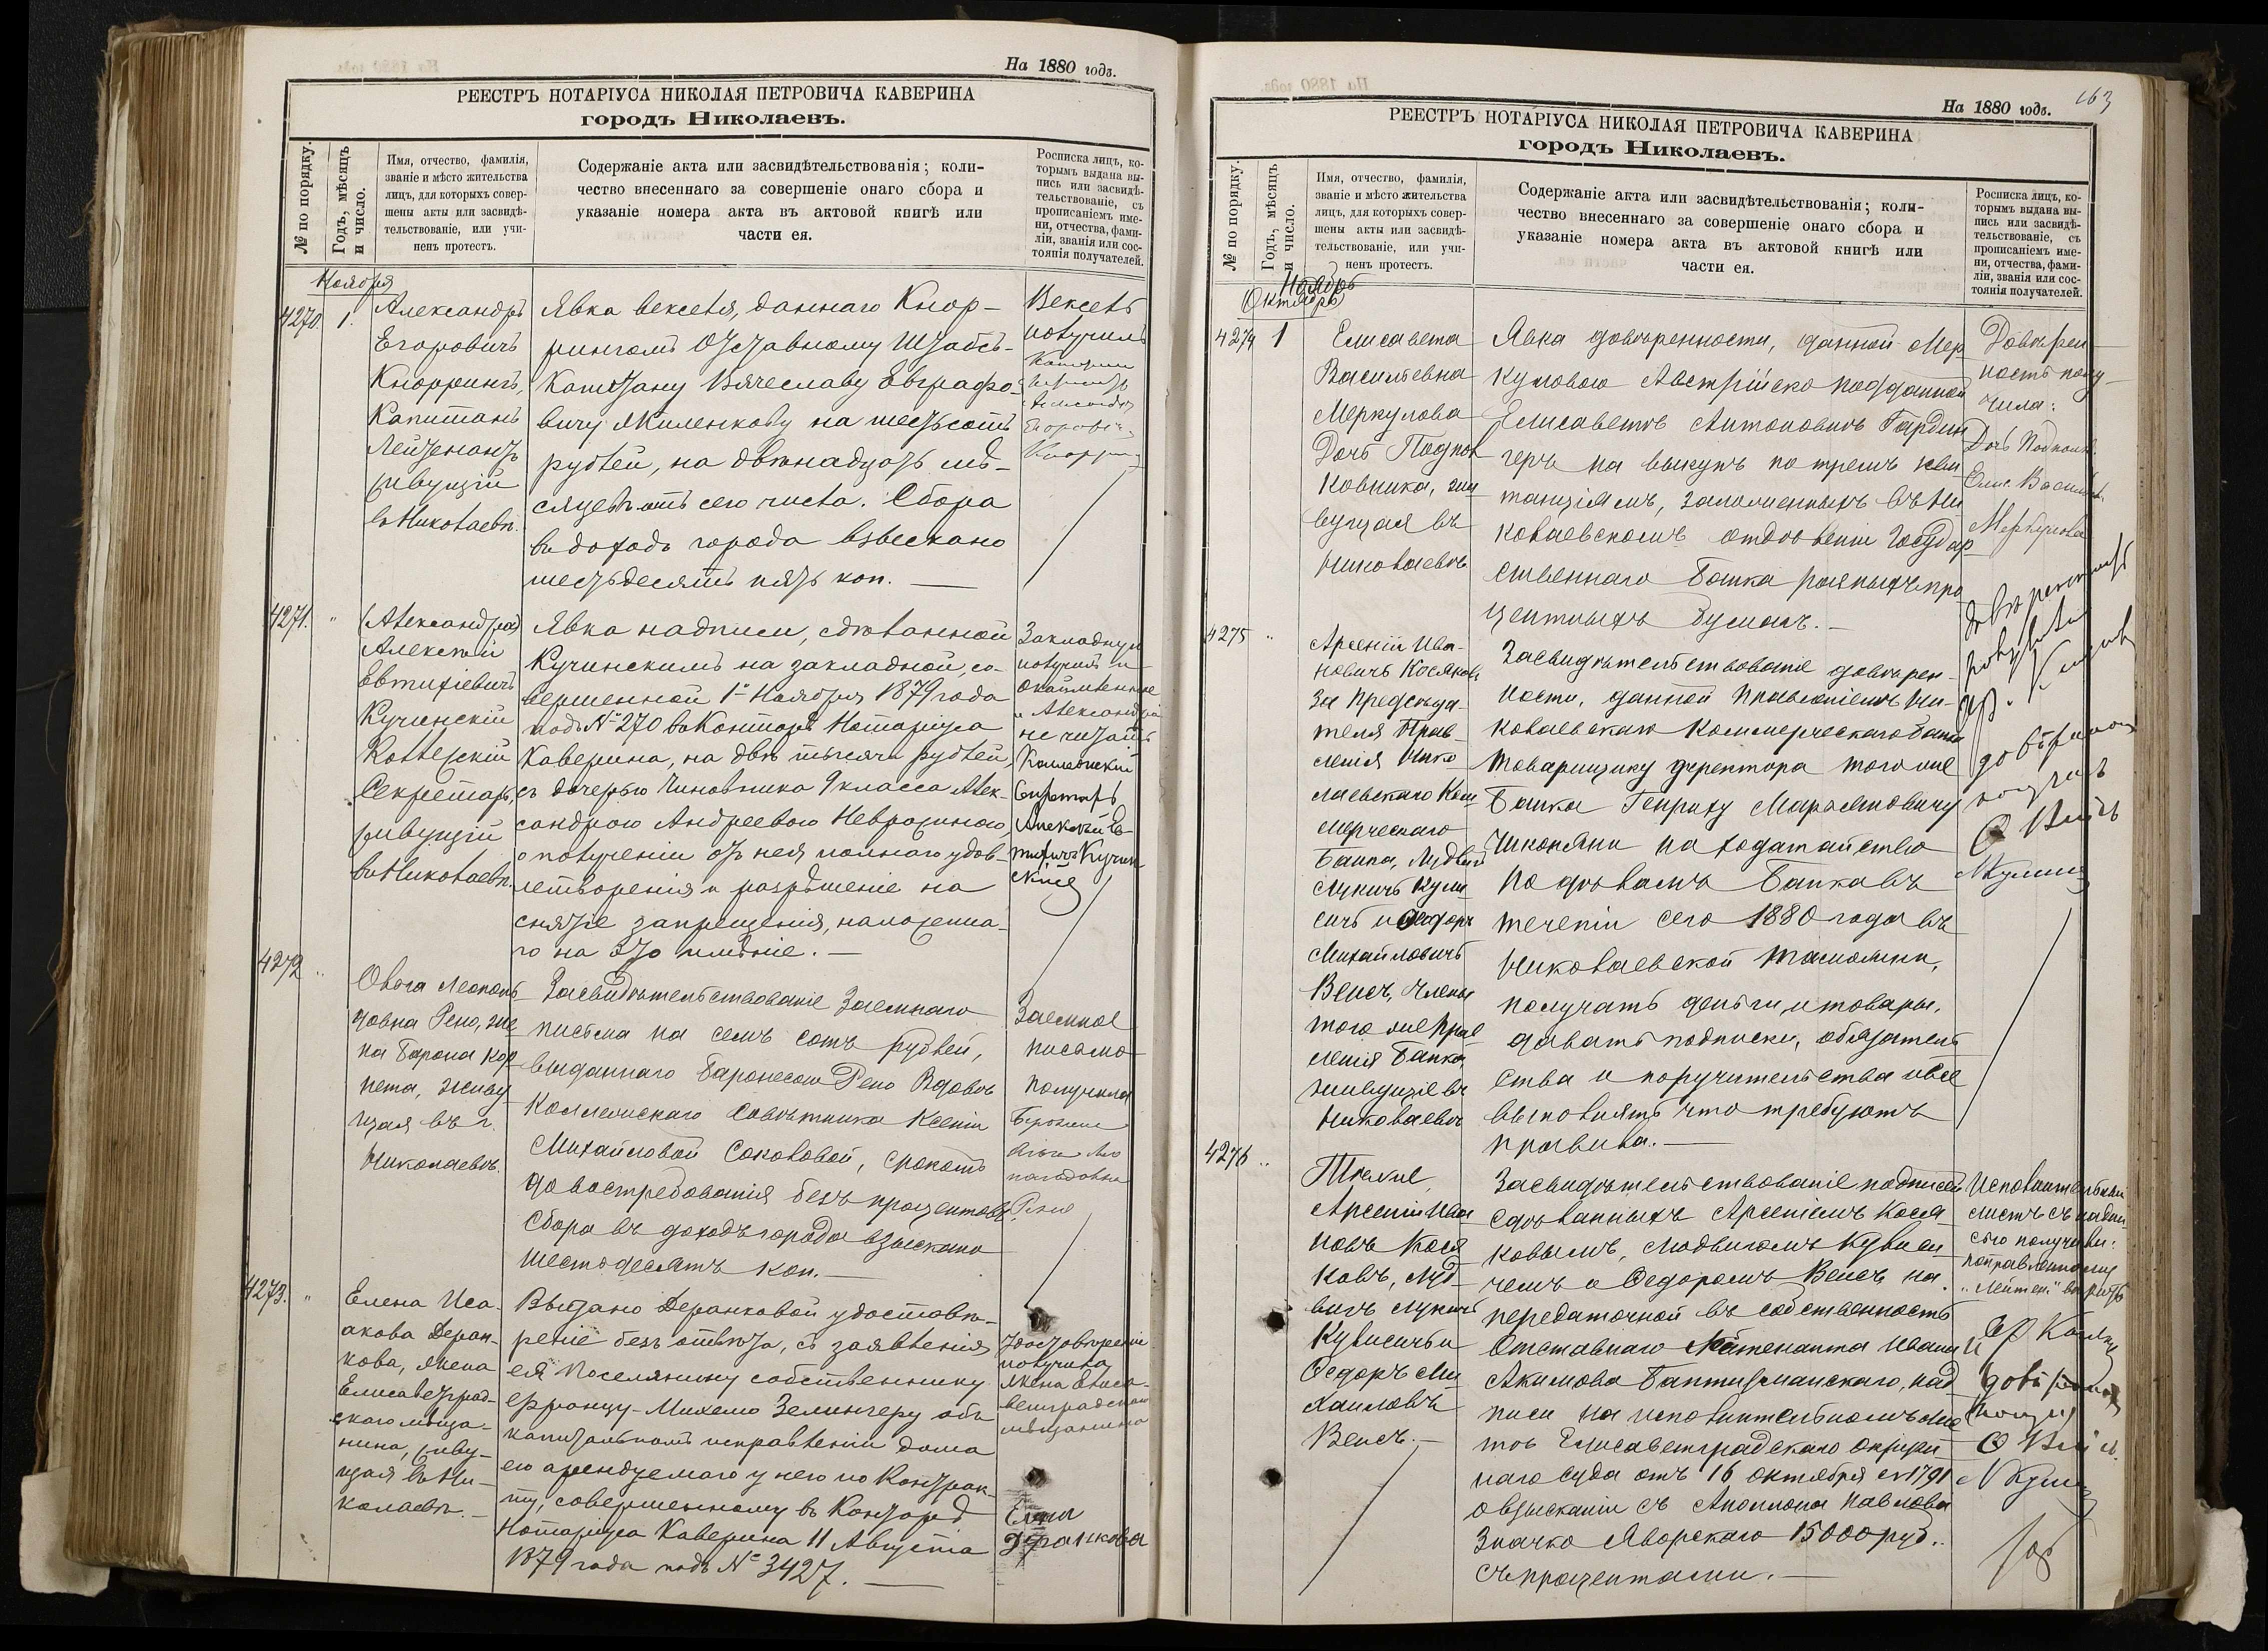 На 1880 годъ.
РЕЕСТРЪ НОТАРІУСА НИКОЛАЯ ПЕТРОВИЧА КАВЕРИНА
городъ Николаевъ.
№ по порядку.
Годъ, мѣсяцъ
и число.
Имя, отчество, фамилія,
званіе и мѣсто жительства
лицъ, для которыхъ совер-
шены акты или засвидѣ-
тельствованіе, или учи-
ненъ протестъ.
Содержаніе акта или засвидѣтельствованія; коли-
чество внесеннаго за совершеніе онаго сбора и
указаніе номера акта въ актовой книгѣ или
части ея.
Росписка лицъ, ко-
торымъ выдана вы-
пись или засвидѣ-
тельствованіе, съ
прописаніемъ име-
ни, отчества, фами-
ліи, званія или сос-
тоянія получателей.
Ноября
4270. 1.
Александръ
Егоровичъ
Кноррингъ,
Капитанъ
Лейтенантъ
живущій
въ Николаевѣ.
Явка векселя, даннаго Кнор-
рингомъ Отставному Штабсъ-
Капитану Вячеславу Евграфо-
вичу Якиленкову на шестьсотъ
рублей, на двѣнадцать мѣ-
сяцевъ отъ сего числа. Сбора
въ доходъ города взыскано
шестьдесятъ пять коп.
Вексель
получилъ
Капитанъ
Лейтенантъ
Александръ
Егоровичъ
Кноррингъ
4271. "
(Александра)
Алексѣй
Евтихіевичъ
Кучинскій
Коллежскій
Секретарь,
живущій
въ Николаевѣ.
Явка надписи, сдѣланной
Кучинскимъ на закладной, со-
вершенной 1го Ноября 1879 года
подъ № 270 въ Конторѣ Нотаріуса
Каверина, на двѣ тысячи рублей,
съ дочерью Чиновника 9 класса Алек-
сандрою Андреевою Невражиною,
о полученіи отъ нея полнаго удов-
летворенія и разрѣшеніе на
снятіе запрещенія, наложенна-
го на это имѣніе.
Закладную
получилъ и
окаймленное
"Александра"
не читать
Коллежскій
Секретарь
Алексѣй Ев-
тихіевичъ Кучин-
скій
4272 "
Ольга Леополь-
довна Рено, же
на Барона Кор
нета, живу
щая въ г.
Николаевѣ.
Засвидѣтельствованіе Заемнаго
письма на семь сотъ рублей,
выданнаго Баронесою Рено Вдовѣ
Коллежскаго Совѣтника Ксеніи
Михайловой Соколовой, срокомъ
до востребованія безъ процентовъ.
Сбора въ доходъ города взыскано
шестьдесятъ коп.
Заемное
письмо
получила
Баронесса
Ольга Лео
польдовна
Рено
4273. "
Елена Иса-
акова Деран-
кова, жена
Елисаветград-
скаго мѣща-
нина, живу-
щая въ Ни-
колаевѣ.
Выдано Деранковой удостовѣ-
реніе безъ отвѣта, съ заявленія
ея Поселянину собственнику
Францу-Михелю Зелингеру объ
капитальномъ исправленіи дома
его арендуемаго у него по Контрак-
ту, совершенному въ Конторѣ
Нотаріуса Каверина 11 Августа
1879 года подъ № 3427.
Удостовѣреніе
получила
жена Елиса-
ветградскаго
мѣщанина
Елена
Деранкова
163
На 1880 годъ.
РЕЕСТРЪ НОТАРІУСА НИКОЛАЯ ПЕТРОВИЧА КАВЕРИНА
городъ Николаевъ.
№ по порядку.
Годъ, мѣсяцъ
и число.
Имя, отчество, фамилія,
званіе и мѣсто жительства
лицъ, для которыхъ совер-
шены акты или засвидѣ-
тельствованіе, или учи-
ненъ протестъ.
Содержаніе акта или засвидѣтельствованія; коли-
чество внесеннаго за совершеніе онаго сбора и
указаніе номера акта въ актовой книгѣ или
части ея.
Росписка лицъ, ко-
торымъ выдана вы-
пись или засвидѣ-
тельствованіе, съ
прописаніемъ име-
ни, отчества, фами-
ліи, званія или сос-
тоянія получателей.
Ноябрь
Октябрь
4274 1
Елисавета
Васильевна
Меркулова
Дочь Подпол
ковника, жи
вущая въ
Николаевѣ
Явка довѣренности, данной Мер
куловою Австрійско подданной
Елисаветѣ Антоновичъ Гардин
геръ на выкупъ по тремъ кви
танціямъ, заложенныхъ въ Ни
колаевскомъ отдѣленіи Государ
ственнаго Банка разныхъ про
центныхъ бумагъ.
Довѣрен-
ность полу-
чила:
Дочь Подполк.
Елис. Василь.
Меркулова
4275 "
Арсеній Ива-
новичъ Косяковъ
За Предсѣда-
теля Прав-
ленія Нико
лаевскаго Ком
мерческаго
Банка, Людвигъ
Лукичъ Кули
сичъ и Ѳедоръ
Михайловичъ
Венсъ, Члены
того же Прав
ленія Банка,
живущіе въ
Николаевѣ
Засвидѣтельствованіе довѣрен-
ности, данной Правленіемъ Ни-
колаевскаго Коммерческаго Банка
товарищику директора того же
Банка Генриху Мараяновичу
Чикояни на ходатайство
по дѣламъ Банка въ
теченіи сего 1880 года въ
Николаевской таможни,
получать деньги и товары,
давать подписки, обязатель
ства и поручительства и все
выполнять что требуютъ
правила.
Довѣренность
получили
Ар. Косяковъ
довѣренность
получ
Ѳ Венсъ
4276 "
Тѣже,
Арсеній Ива
новъ Кося
ковъ, Люд-
вигъ Лукичъ
Кулисичъ и
Ѳедоръ Ми
хаиловъ
Венсъ.
Засвидѣтельствованіе подписей
сдѣланныхъ Арсеніемъ Кося
ковымъ, Людвигомъ Кулиси
чемъ и Ѳедоромъ Венсъ на
передаточной въ собственность
Отставнаго Лейтенанта Ивана
Акимова Баптизманскаго, над
писи на исполнительномъ лис
тѣ Елисаветградскаго Окруж
наго Суда отъ 16 Октября № 1791
о взысканіи съ Аполлона Павлова
Значко Яворскаго 15000 руб.
съ процентами.
Исполнительный
листъ съ надпи
сью получили:
поправленному
"Лейтен" вѣрить
Ар Косяковъ
Ѳ Венсъ